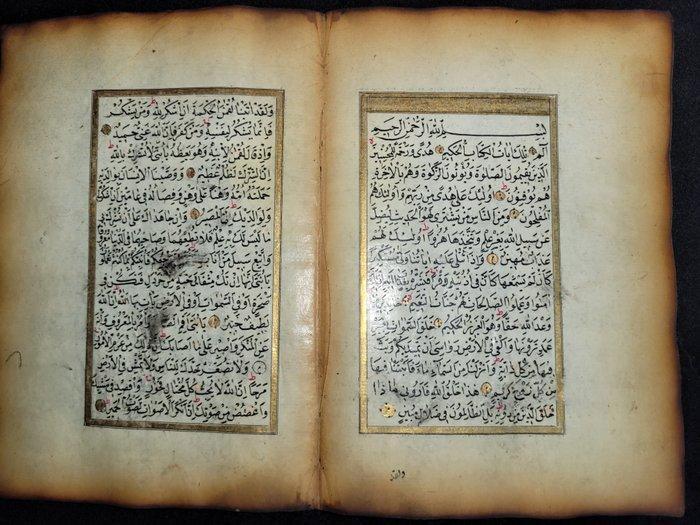 بسم الله الرحمن الرحيم
الم تلك ايات الكتاب الحكيم هدى ورحمة للمحسنين
الذين يقيمون الصلوة ويؤتون الزكوة وهم بالاخرة
هم يوقنون اولئك على هدى من ربهم واولئك هم
المفلحون ومن الناس من يشتري لهو الحديث ليضل
عن سبيل الله بغير علم ويتخذها هزوا اولئك لهم
عذاب مهين واذا تتلى عليه اياتنا ولى مستكبرا
كان لم يسمعها كان في اذنيه وقرا فبشره
امنوا وعملوا الصالحات لهم جنات النعيم
وعد الله حقا وهو العزيز الحكيم خلق السموات بغير
عمد ترونها والقى في الارض رواسي ان تميد بكم وبث
فيها من كل دابة وانزلنا من السماء ماء فانبتنا فيها
من كل زوج كريم هذا خلق الله فاروني ماذا
خلق الذين من دونه بل الظالمون في ضلال مبين
ولقد
ولقد اتينا لقمن الحكمة ان اشكر لله ومن يشكر
فانما يشكر لنفسه ومن كفر فان الله غني حميد
واذ قال لقمن لابنه وهو يعظه يا بني لا تشرك بالله
ان الشرك لظلم عظيم ووصينا الانسان بوالديه
حملته امه وهنا على وهن وفصاله في عامين ان اشكر لي
ولوالديك الي المصير وان جاهداك على ان تشرك بي
ما ليس لك به علم فلا تطعهما وصاحبهما في الدنيا معروفا
واتبع سبيل من اناب مرجعكم فانبئكم بما كنتم تعملون
يا بني انها ان تك مثقال حبة من خردل فتكن في
صخرة او في السموات او في الارض يات بها الله ان الله
لطيف خبير يا بني اقم الصلوة وامر بالمعروف وانه
عن المنكر واصبر على ما اصابك ان ذلك من عزم الامور
ولا تصعر خدك للناس ولا تمش في الارض
مرحا ان الله لا يحب كل مختال فخور واقصد في مشيك
واغضض من صوتك ان انكر الاصوات لصوت الحمير